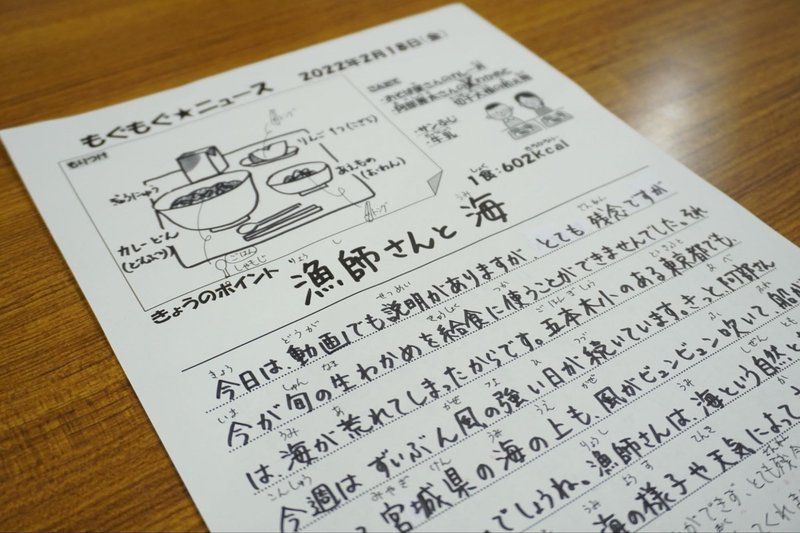 もぐもぐ★ニュース 2022年2月18日(金)
もりつけ
りんご 1つ(こざら)
ぎゅうにゅう
あえもの
(おわん)
トング
カレーどん
(どんぶり)
ごはん
しゃもじ
:牛乳
1食:602kcal
きょうのポイント 漁師さんと 海
今日は、動画でも説明がありますが、とても 残念ですが
今が旬の生わかめを給食に使うことができませんでした。それ
は 海が荒れてしまったからです。五本木小のある東京都でも、
今週は ずいぶん 風の強い日が続いています。きっと阿部さん
宮城県の海の上も 風がビュンビュン吹いて、船が
でしょうね。漁師さんは、海という自然と
海の様子や天気によって
ができず、とても残念